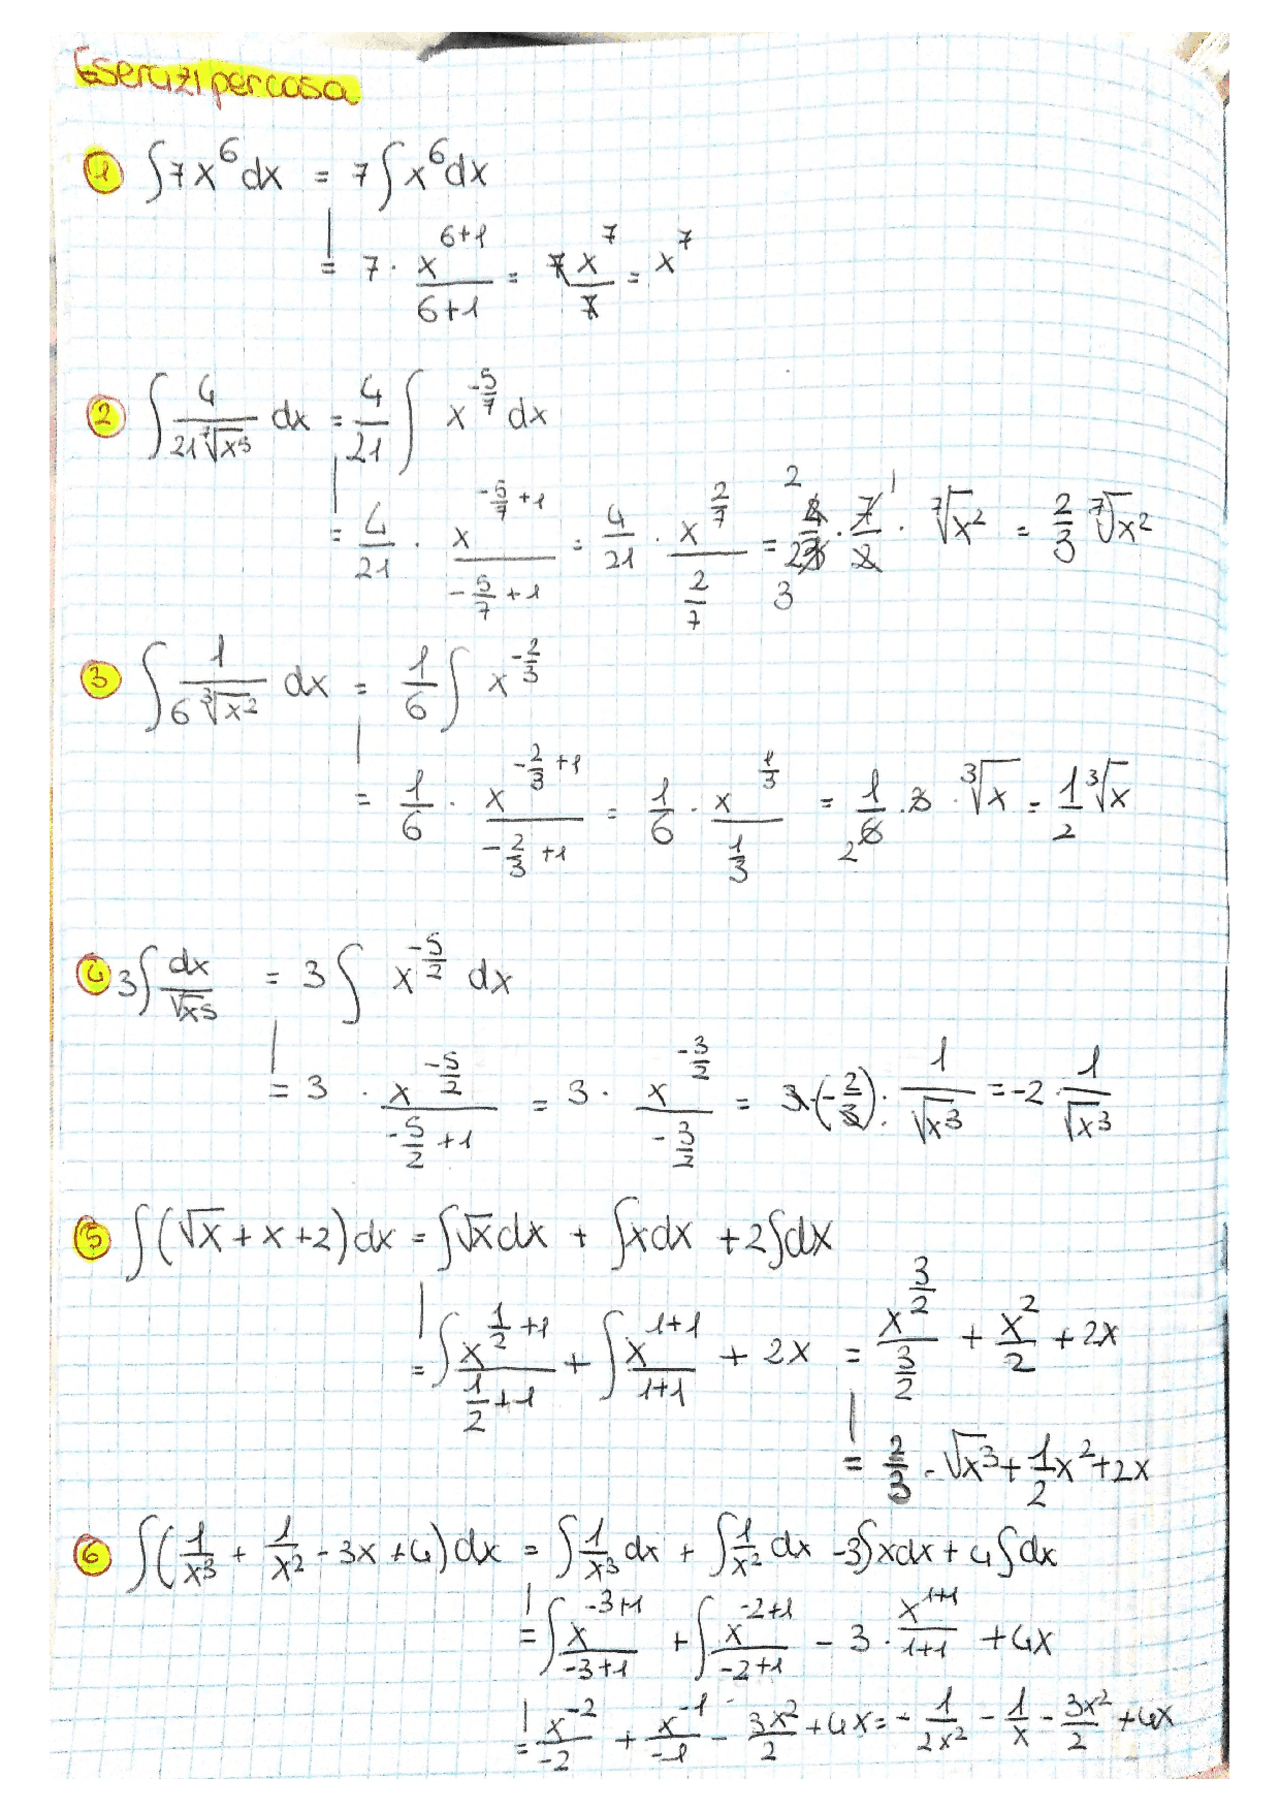 Esercizi per casa
1 ∫7x^6 dx = 7∫x^6 dx
= 7 · x^(6+1)/(6+1) = 7x^7/7 = x^7
2 ∫ 4/(21 ⁷√x^5) dx = 4/21 ∫ x^(-5/7) dx
= 4/21 · x^(-5/7+1)/(-5/7+1) = 4/21 · x^(2/7)/(2/7) = 4/21 · 7/2 · ⁷√x^2 = 2/3 ⁷√x^2
3 ∫ 1/(6 ³√x^2) dx = 1/6 ∫ x^(-2/3)
= 1/6 · x^(-2/3+1)/(-2/3+1) = 1/6 · x^(1/3)/(1/3) = 1/6 · 3 · ³√x = 1/2 ³√x
4 3∫ dx/√x^5 = 3∫ x^(-5/2) dx
= 3 · x^(-5/2)/(-5/2+1) = 3 · x^(-3/2)/(-3/2) = 3·(-2/3) · 1/√x^3 = -2 · 1/√x^3
5 ∫(√x + x + 2)dx = ∫√x dx + ∫x dx + 2∫dx
= ∫ x^(1/2+1)/(1/2+1) + ∫ x^(1+1)/(1+1) + 2x = x^(3/2)/(3/2) + x^2/2 + 2x
= 2/3 · √x^3 + 1/2 x^2 + 2x
6 ∫(1/x^3 + 1/x^2 - 3x + 4)dx = ∫ 1/x^3 dx + ∫ 1/x^2 dx - 3∫xdx + 4∫dx
= ∫ x^(-3+1)/(-3+1) + ∫ x^(-2+1)/(-2+1) - 3 · x^(1+1)/(1+1) + 4x
= x^(-2)/(-2) + x^(-1)/(-1) - 3x^2/2 + 4x = - 1/(2x^2) - 1/x - 3x^2/2 + 4x